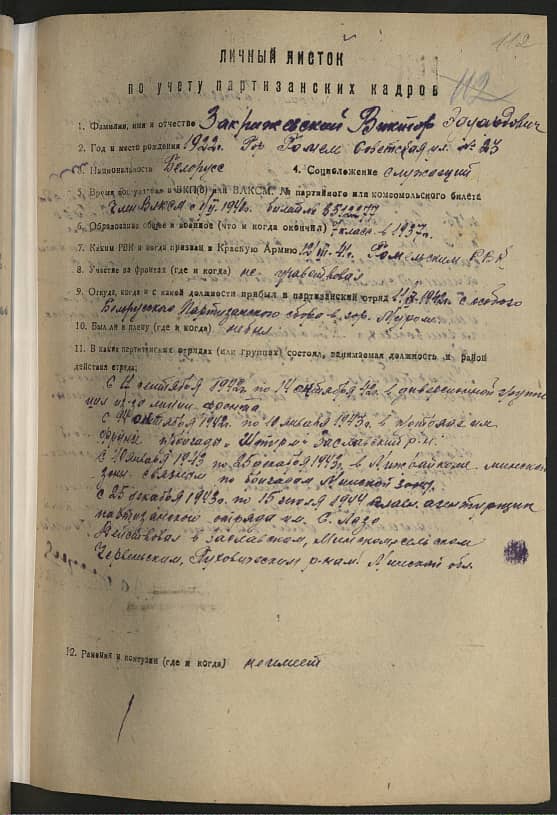 112
ЛИЧНЫЙ ЛИСТОК
112
по учету партизанских кадров
1. Фамилия, имя и отчество Закрижевский Виктор
2. Год и место рождения 1922 г. Гор. Гомель Советская ул. № 23
3. Национальность Белорусс 4. Соцположение служащий
5. Время вступления в ВКП(б) или ВЛКСМ, № партийного или комсомольского билета
Член ВЛКСМ с 1940г. билет №
6. Образование общее и военное (что и когда окончил) 7 класс. в 1937 г.
7. Каким РВК и когда призван в Красную Армию 41г. Гомельским Р.В.К
8. Участие на фронтах (где и когда) не участвовал
9. Откуда, когда и с какой должности прибыл в партизанский отряд 1942г. с особого
Белорусского Партизанского сбора в гор. Муром.
10. Был ли в плену (где и когда) не был
11. В каких партизанских отрядах (или группах) состоял, занимаемая должность и район
действия отряда:
С 12 сентября 1942г. по 14 октября 42г. в диверсионной группе
линии фронта
С 14 октября 1942г. по 10 января 1943г. в им.
Фрунзе бригады "Штурм" Заславский р-н.
С 10 января 1943 по 25 декабря 1943г. в Минской
зоны связным по бригадам Минской зоны.
С 25 декабря 1943г. по 15 июля 1944 агентурщик
партизанского отряда им. С. Лазо
Действовал в Заславском, Минском сельском
Червеньским, Пуховическим р-нам. Минской обл.
12. Ранения и контузии (где и когда) не имеет